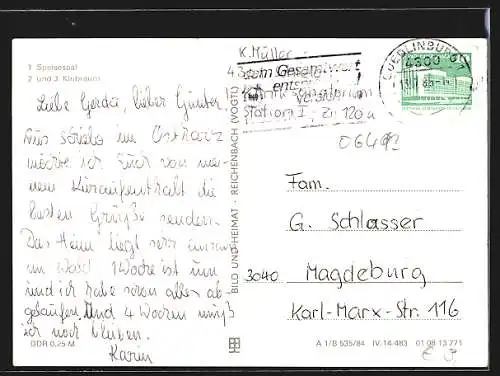 1 Speisesaal
2 und 3 Klubraum
Liebe Gerda, lieber Günter!
Aus Silo im Ostharz
möchte ich Euch von mei-
nem Kuraufenthalt die
besten Grüße senden.
Das Heim liegt sehr einsam
im Wald 1 Woche ist um
und ich habe schon alles ab-
gelaufen. Und 4 Wochen muß
ich noch bleiben.
Karin
DDR 0,25 M
BILD UND HEIMAT · REICHENBACH (VOGTL)
K. Müller
43
Sanatorium
Station I Zi 120a
zum Gesamtwert
QUEDLINBURG 1
4300
06412
Fam.
G. Schlasser
3040 Magdeburg
Karl-Marx-Str. 116
A 1/B 535/84 IV-14-483 01 08 13 771
€ 3,